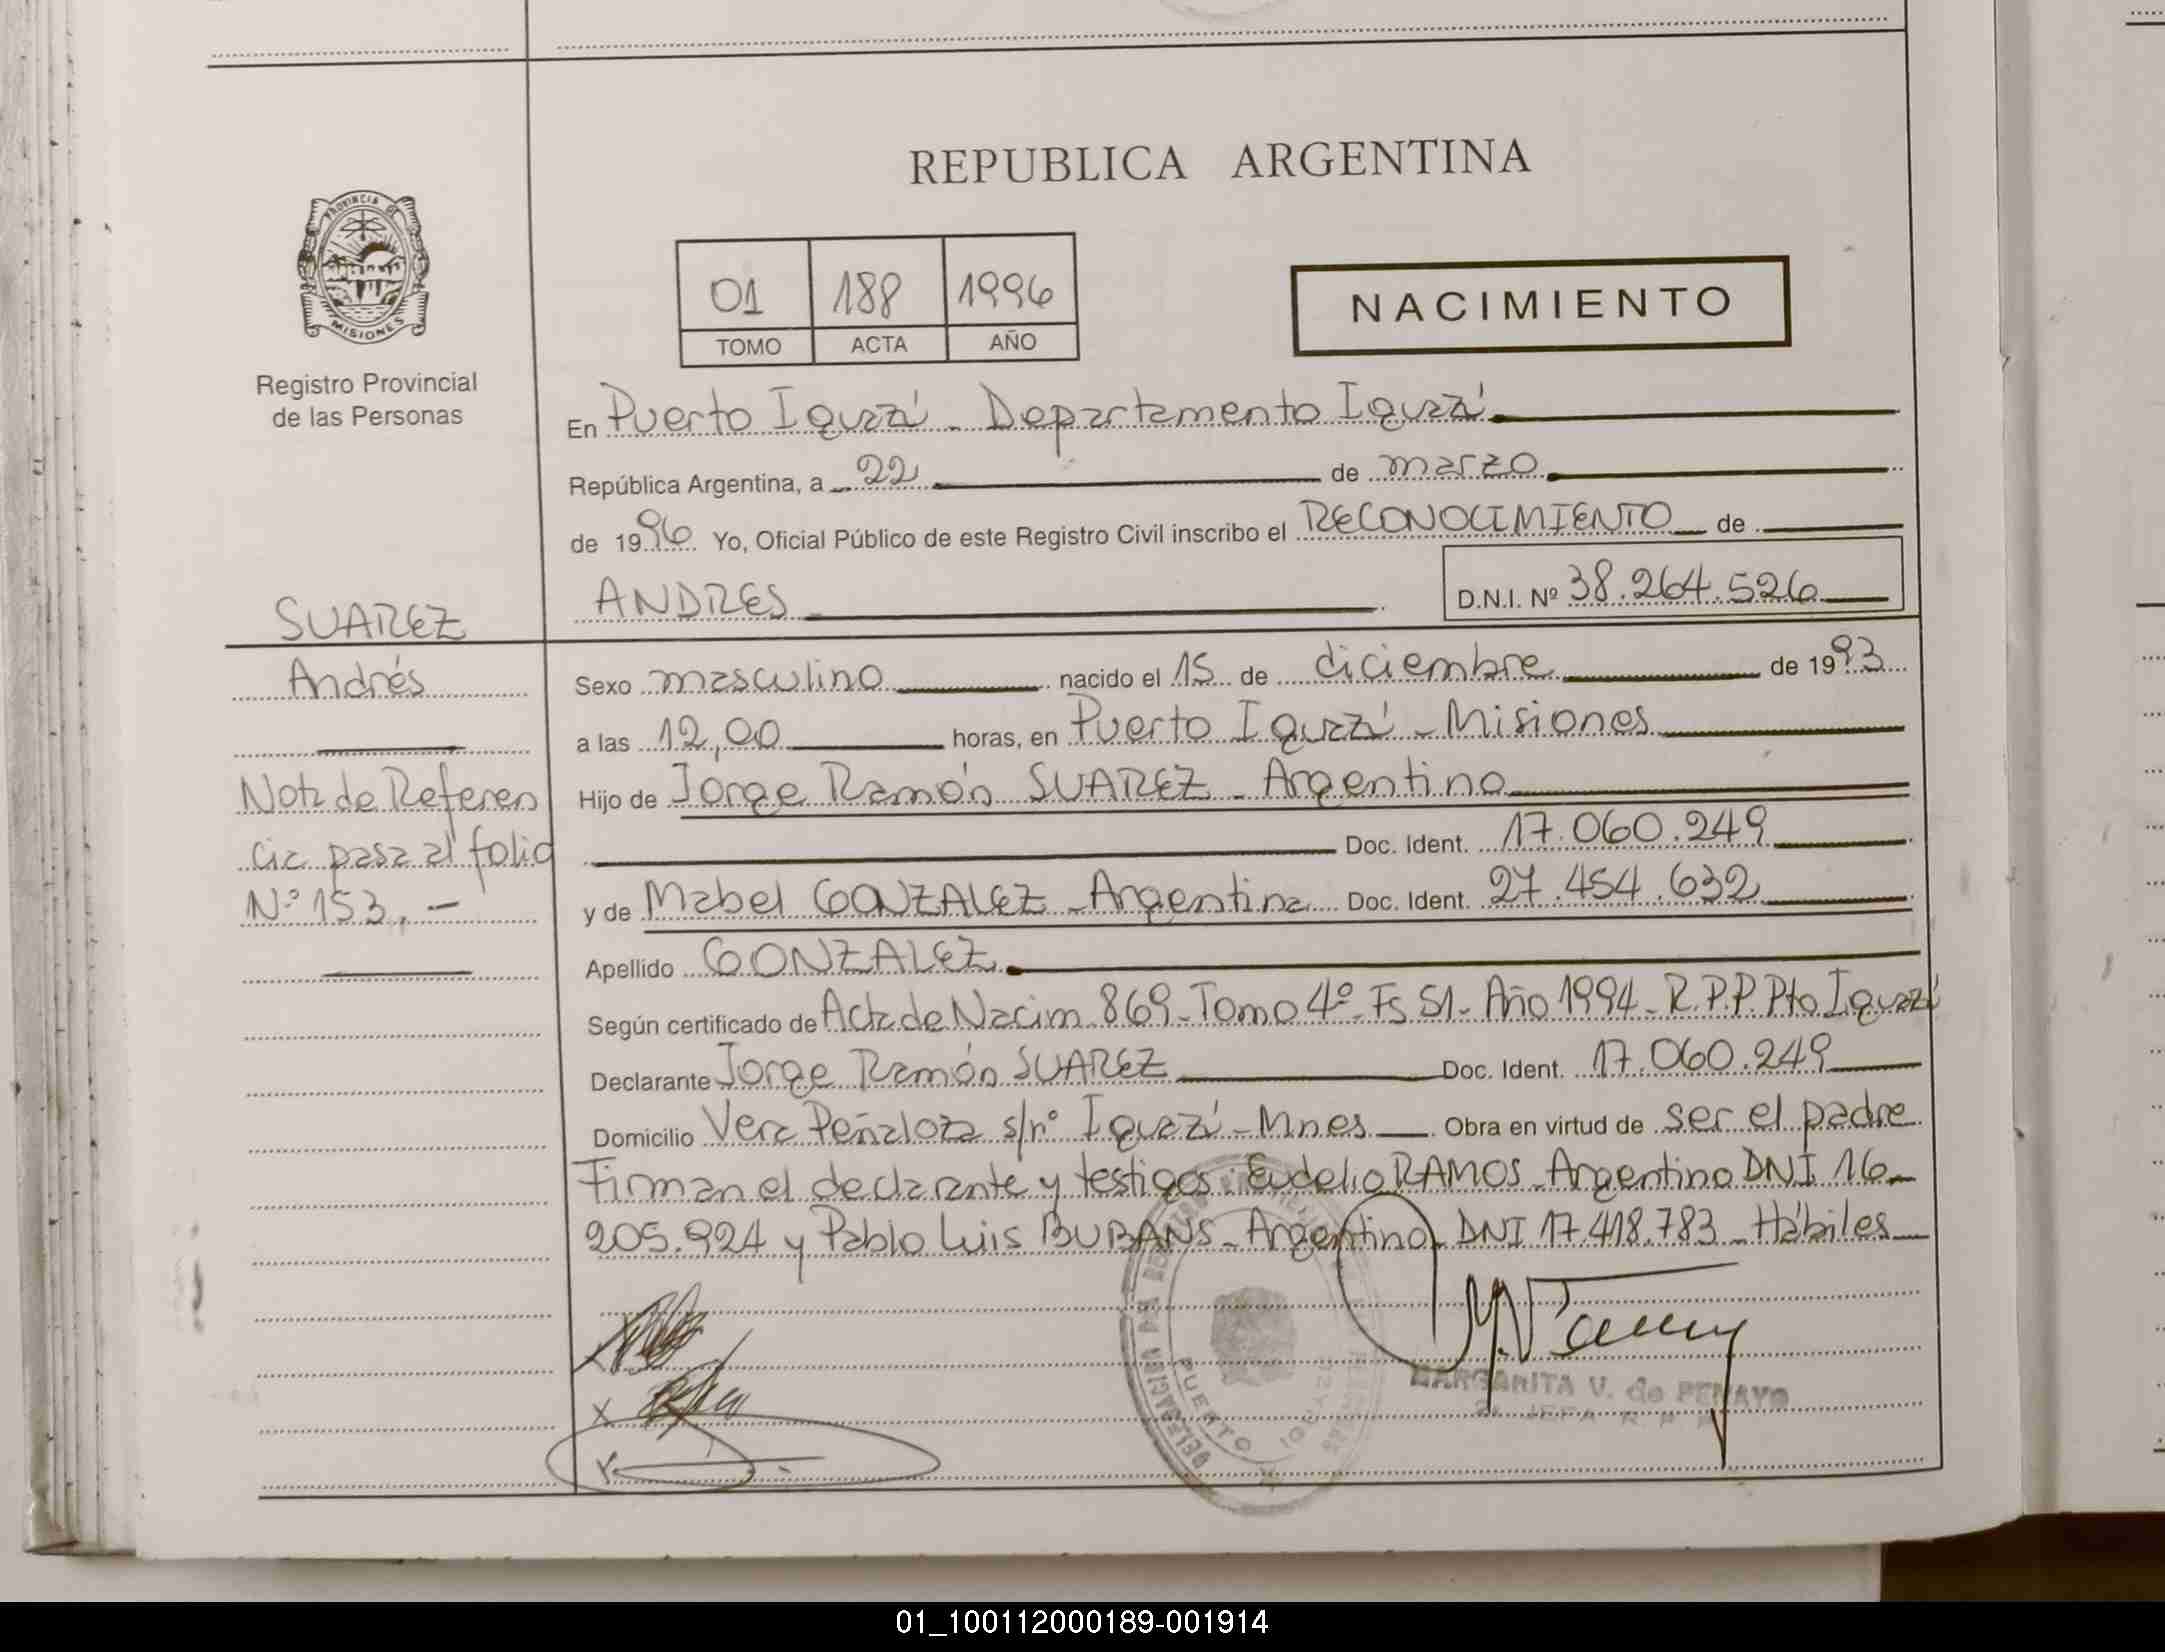 REPUBLICA ARGENTINA
PROVINCIA DE
MISIONES
Registro Provincial
de las Personas
01 188 1996
TOMO ACTA AÑO
NACIMIENTO
En Puerto Iguazú - Departamento Iguazú
República Argentina, a 22 de marzo
de 1996 Yo, Oficial Público de este Registro Civil inscribo el RECONOCIMIENTO de
ANDRES D.N.I. Nº 38.264.526
SUAREZ
Andrés
Nota de Referen
cia pasa al folio
Nº 153.-
Sexo masculino nacido el 15 de diciembre de 1993
a las 12,00 horas, en Puerto Iguazú - Misiones
Hijo de Jorge Ramón SUAREZ - Argentino
Doc. Ident. 17.060.249
y de Mabel GONZALEZ - Argentina Doc. Ident. 27.454.632
Apellido GONZALEZ
Según certificado de Acta de Nacim 869 - Tomo 4º - Fs 51 - Año 1994 - R.P.P. Pto Iguazú
Declarante Jorge Ramón SUAREZ Doc. Ident. 17.060.249
Domicilio Vera Peñaloza s/nº Iguazú - Mnes Obra en virtud de ser el padre
Firman el declarante y testigos: Eudelio RAMOS - Argentino DNI 16-
205.924 y Pablo Luis BUBANS - Argentino - DNI 17.418.783 - Hábiles
PUERTO
MARGARITA V. de PENAYO
JEFA R P P
01_100112000189-001914